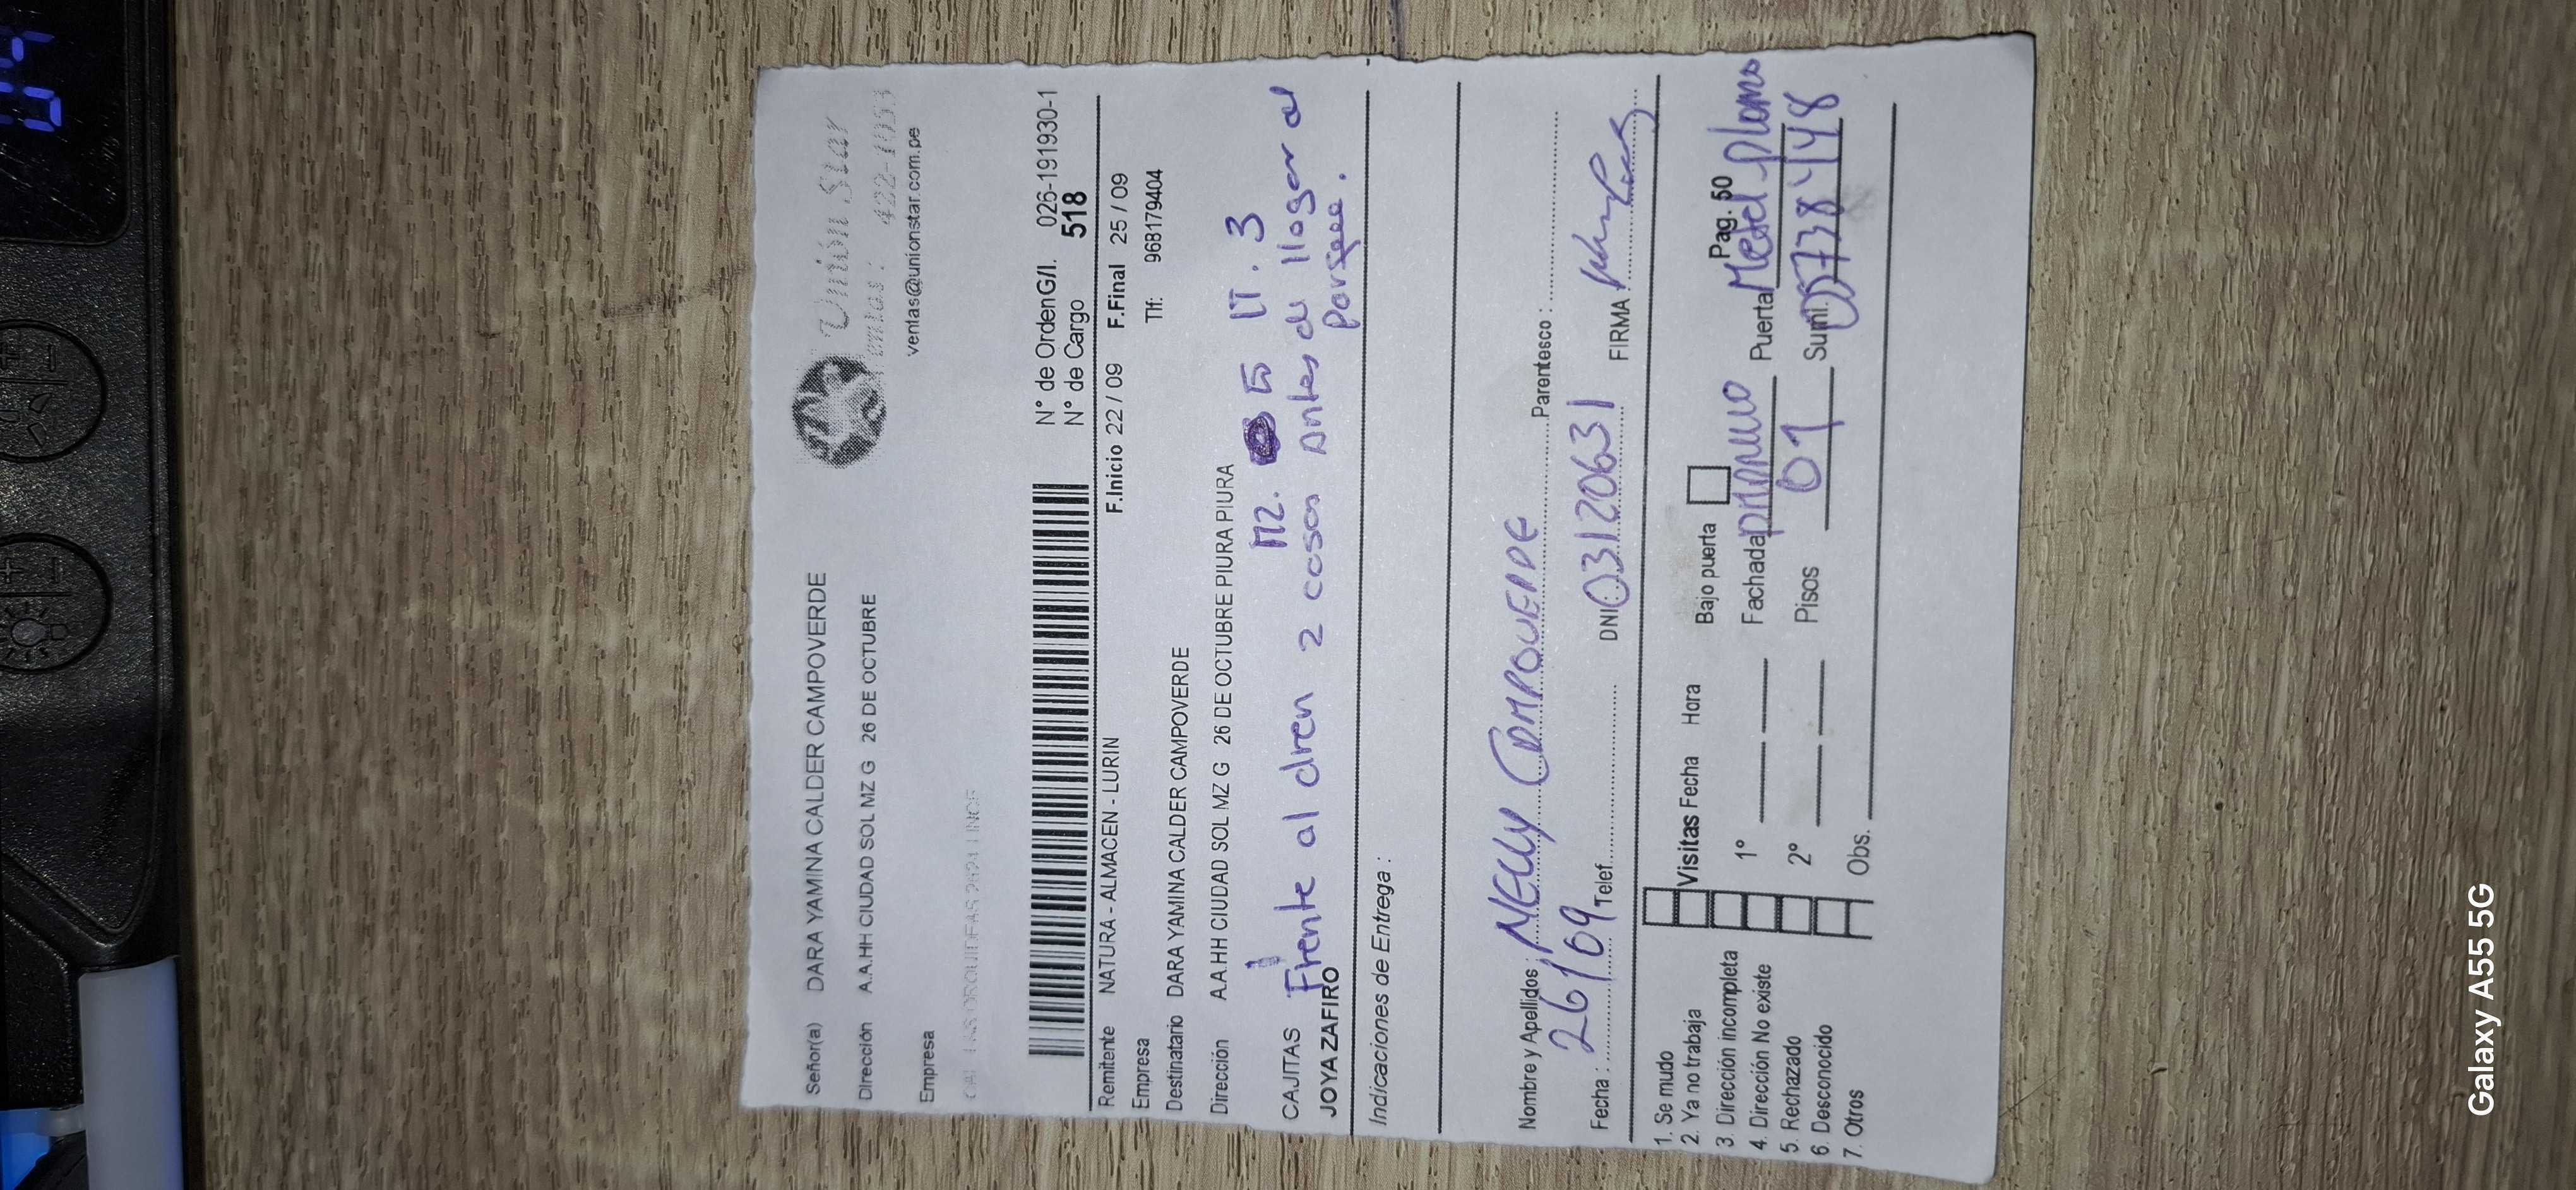 Señor(a) DARA YAMINA CALDER CAMPOVERDE
Unión Star
Dirección A.A.HH CIUDAD SOL MZ G 26 DE OCTUBRE
ventas@unionstar.com.pe
Empresa
N° de OrdenG/I. 026-191930-1
N° de Cargo 518
Remitente NATURA - ALMACEN - LURIN
F.Inicio 22 / 09 F.Final 25 / 09
Empresa
Tlf: 968179404
Destinatario DARA YAMINA CALDER CAMPOVERDE
Dirección A.A.HH CIUDAD SOL MZ G 26 DE OCTUBRE PIURA PIURA
MZ. LT. 3
CAJITAS
Frente al dren 2 casas antes de llegar al
JOYA ZAFIRO
parque.
Indicaciones de Entrega :
Nombre y Apellidos : NELLY CAMPOVERDE Parentesco :
Fecha : 26/09 Telef. DNI 03120631 FIRMA
1. Se mudo
2. Ya no trabaja
3. Dirección incompleta
4. Dirección No existe
5. Rechazado
6. Desconocido
7. Otros
Visitas Fecha Hora Bajo puerta Pag. 50
1° Fachada Puerta Metal plomo
2° Pisos 01 Sumi.
Obs.
Galaxy A55 5G